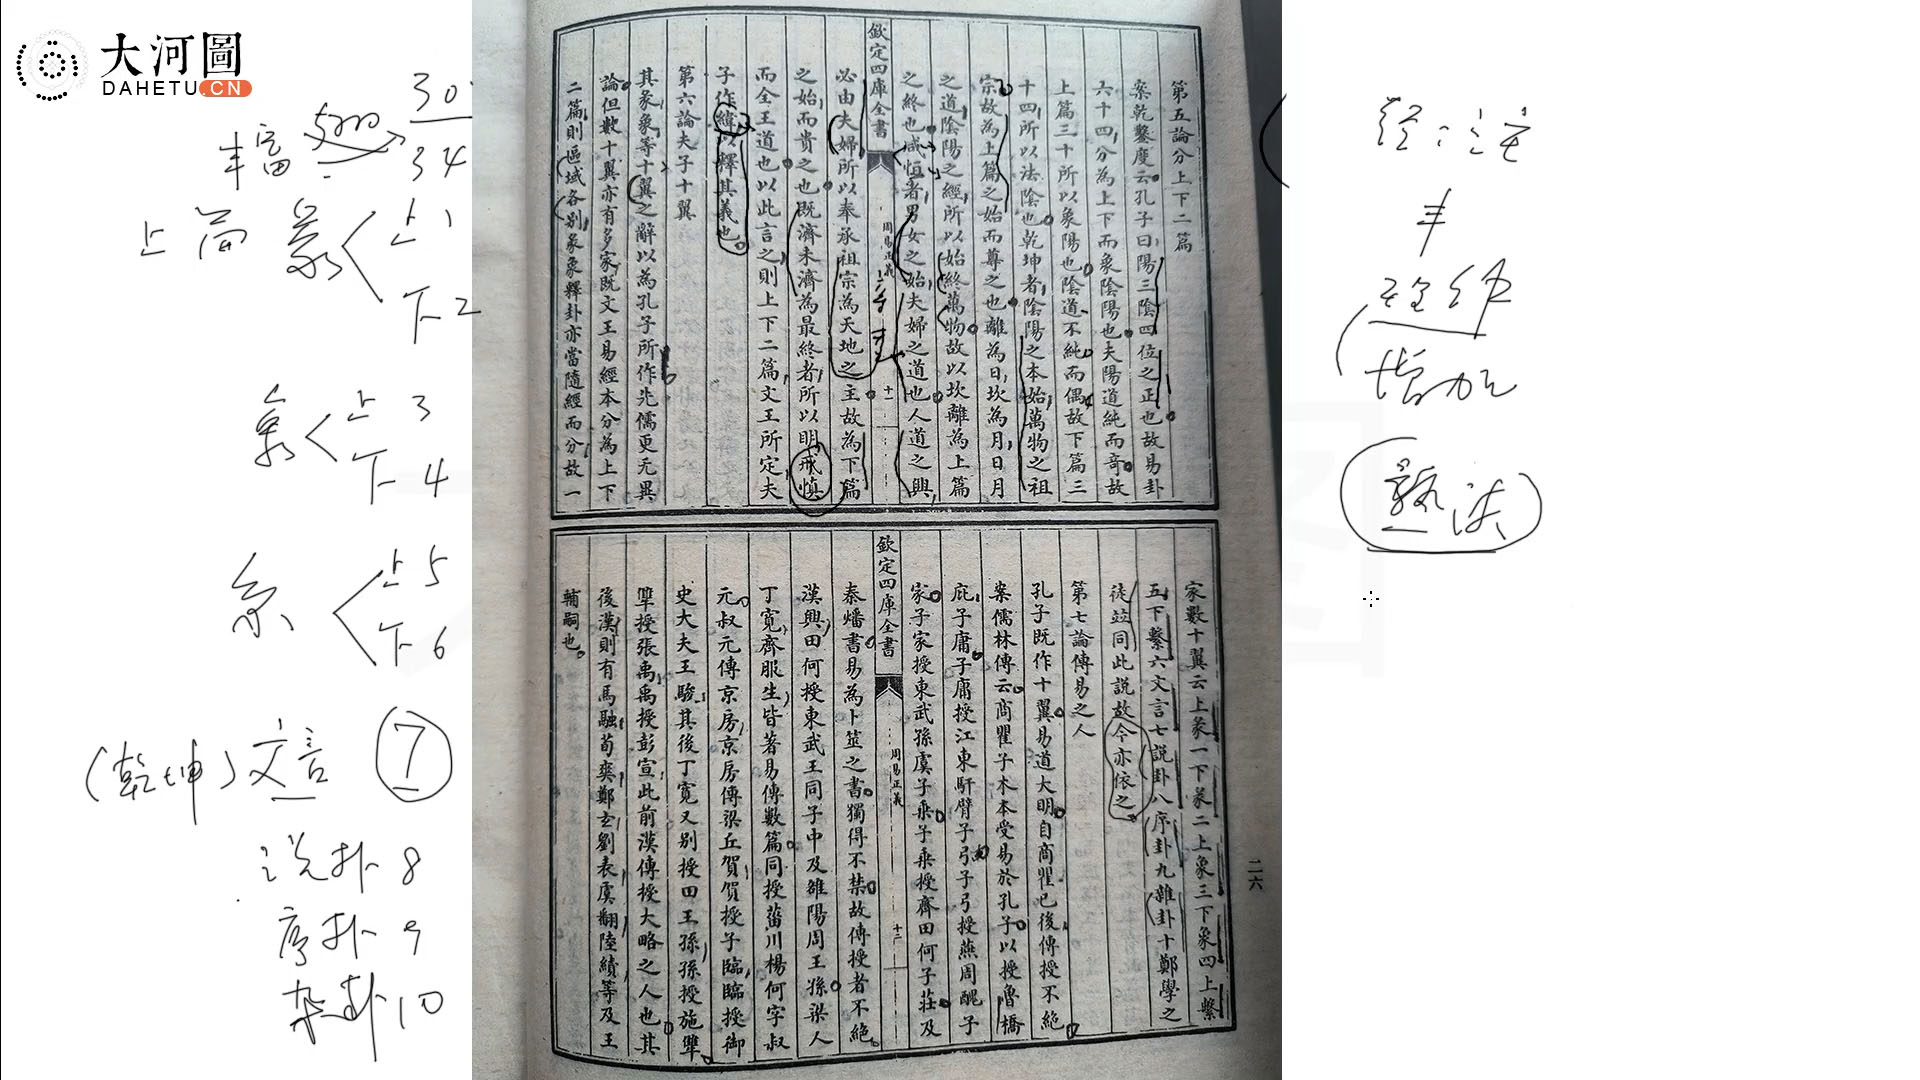 大河圖
DAHETU.CN
第五論分上下二篇
案乾鑿度云孔子曰陽三陰四位之正也故易卦
六十四分為上下而象陰陽也夫陽道純而奇故
上篇三十所以象陽也陰道不純而偶故下篇三
十四所以法陰也乾坤者陰陽之本始萬物之祖
宗故為上篇之始而尊之也離為日坎為月日月
之道陰陽之經所以始終萬物故以坎離為上篇
之終也咸恒者男女之始夫婦之道也人道之興
欽定四庫全書
周易正義
十一
必由夫婦所以奉承祖宗為天地之主故為下篇
之始而貴之也既濟未濟為最終者所以明戒慎
而全王道也以此言之則上下二篇文王所定夫
子作緯以釋其義也
第六論夫子十翼
其彖象等十翼之辭以為孔子所作先儒更无異
論但數十翼亦有多家既文王易經本分為上下
二篇則區域各別彖象釋卦亦當隨經而分故一
家數十翼云上彖一下彖二上象三下象四上繫
五下繫六文言七說卦八序卦九雜卦十鄭學之
徒竝同此說故今亦依之
第七論傳易之人
孔子既作十翼易道大明自商瞿已後傳授不絕
案儒林傳云商瞿子木本受易於孔子以授魯橋
庇子庸子庸授江東馯臂子弓子弓授燕周醜子
家子家授東武孫虞子乗子乗授齊田何子莊及
欽定四庫全書
周易正義
十二
秦燔書易為卜筮之書獨得不禁故傳授者不絕
漢興田何授東武王同子中及雒陽周王孫梁人
丁寬齊服生皆著易傳數篇同授菑川楊何字叔
元叔元傳京房京房傳梁丘賀賀授子臨臨授御
史大夫王駿其後丁寬又別授田王孫孫授施犨
犨授張禹禹授彭宣此前漢傳授大略之人也其
後漢則有馬融荀爽鄭玄劉表虞翻陸績等及王
輔嗣也
二六
30
丰富
34
上 1
下 2
象
上 3
下 4
系
上 5
下 6
(乾坤)文言 ⑦
说卦 8
序卦 9
杂卦 10
丰
增加